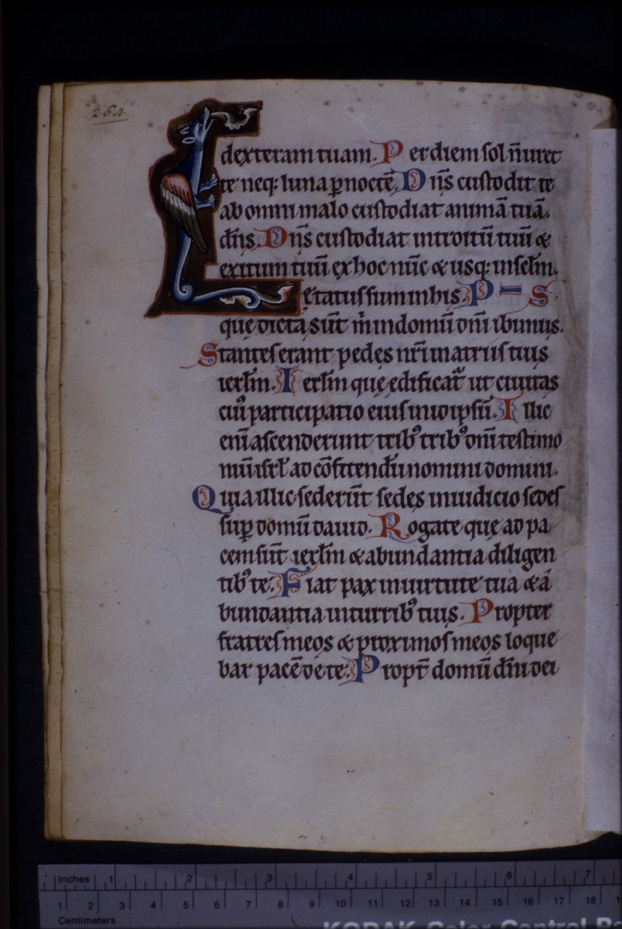 264.
dexteram tuam. P er diem sol ñ uret
te neq; luna p noctē. D ñs custodit te
ab omni malo custodiat animā tuā.
dñs. D ñs custodiat introitū tuū &
exitum tuū ex hoc nūc & usq; in sclm.
L etatus sum in his P S
que dicta sūt m in domū dnī ibimus.
Stantes erant pedes nrī in atriis tuis
ierlm. I erlm que edificat ut ciuitas
cui participatio eius in id ipsū. I llic
enī ascenderunt trib trib dnī testimo
niū isrl ad cōfitendū nomini domini.
Quia illic sederūt sedes in iudicio sedes
sup domū dauid. R ogate que ad pa
cem sūt ierlm & abundantia diligen
tib te. F iat pax in uirtute tua & a
bundantia in turrib tuis. P ropter
fratres meos & proximos meos loque
bar pacē de te. P ropt domū dnī dei
Inches 1 2 3 4 5 6 7
1 2 3 4 5 6 7 8 9 10 11 12 13 14 15 16 17 18
Centimeters
KODAK Color Control